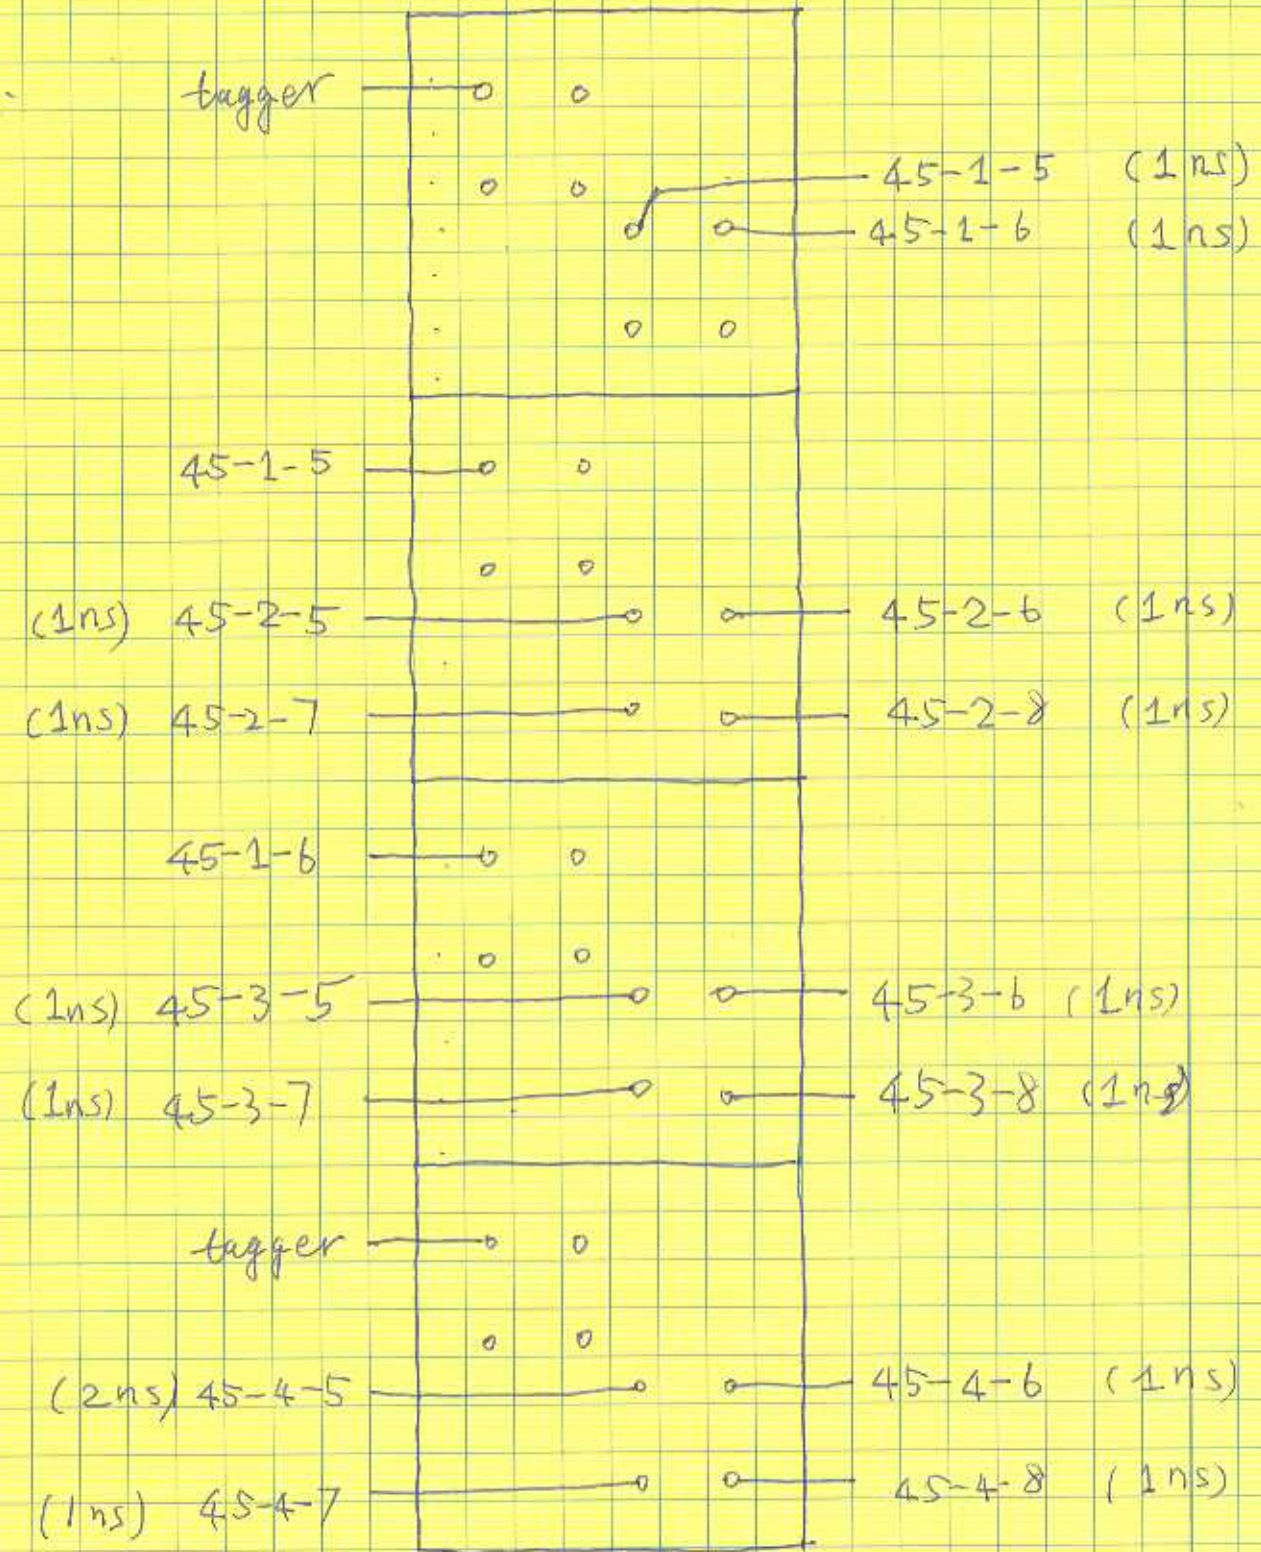 tagger
45-1-5 (1ns)
45-1-6 (1ns)
45-1-5
(1ns) 45-2-5 45-2-6 (1ns)
(1ns) 45-2-7 45-2-8 (1ns)
45-1-6
(1ns) 45-3-5 45-3-6 (1ns)
(1ns) 45-3-7 45-3-8 (1ns)
tagger
(2ns) 45-4-5 45-4-6 (1ns)
(1ns) 45-4-7 45-4-8 (1ns)